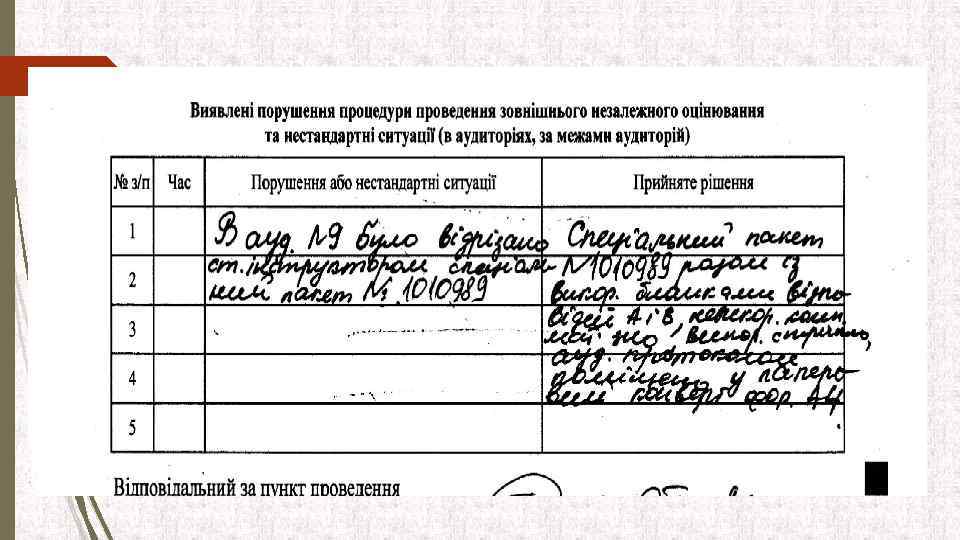 Виявлені порушення процедури проведення зовнішнього незалежного оцінювання
та нестандартні ситуації (в аудиторіях, за межами аудиторій)
№ з/п Час Порушення або нестандартні ситуації Прийняте рішення
1
В ауд. №9 було відрізано
ст. інструктором
ний пакет № 1010989
Спеціальний пакет
№1010989 разом із
викор. бланками відпо-
відей А і В,
ауд. протоколом
у паперо-
2
3
4
5
Відповідальний за пункт проведення